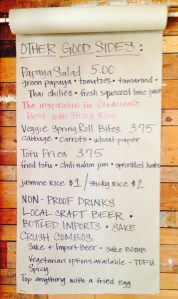 OTHER GOOD SIDES:
Papaya Salad 5.00
green papaya • tomatoes • tamarind •
Thai chilies • fresh squeezed lime juice
The inspiration for
Best with Sticky Rice
Veggie Spring Roll Bites 3.75
cabbage • carrots • wheat paper
Tofu Fries 3.75
fried tofu • chili nahm jim • sprinkled herbs
Jasmine Rice $1 / Sticky Rice $2
NON-PROOF DRINKS
LOCAL CRAFT BEER •
BOTTLED IMPORTS • SAKE
CRUSH COMBOS
Sake + Import Beer • SAKE BOMB
Vegetarian options available - TOFU
Spicy
Top anything with a fried egg